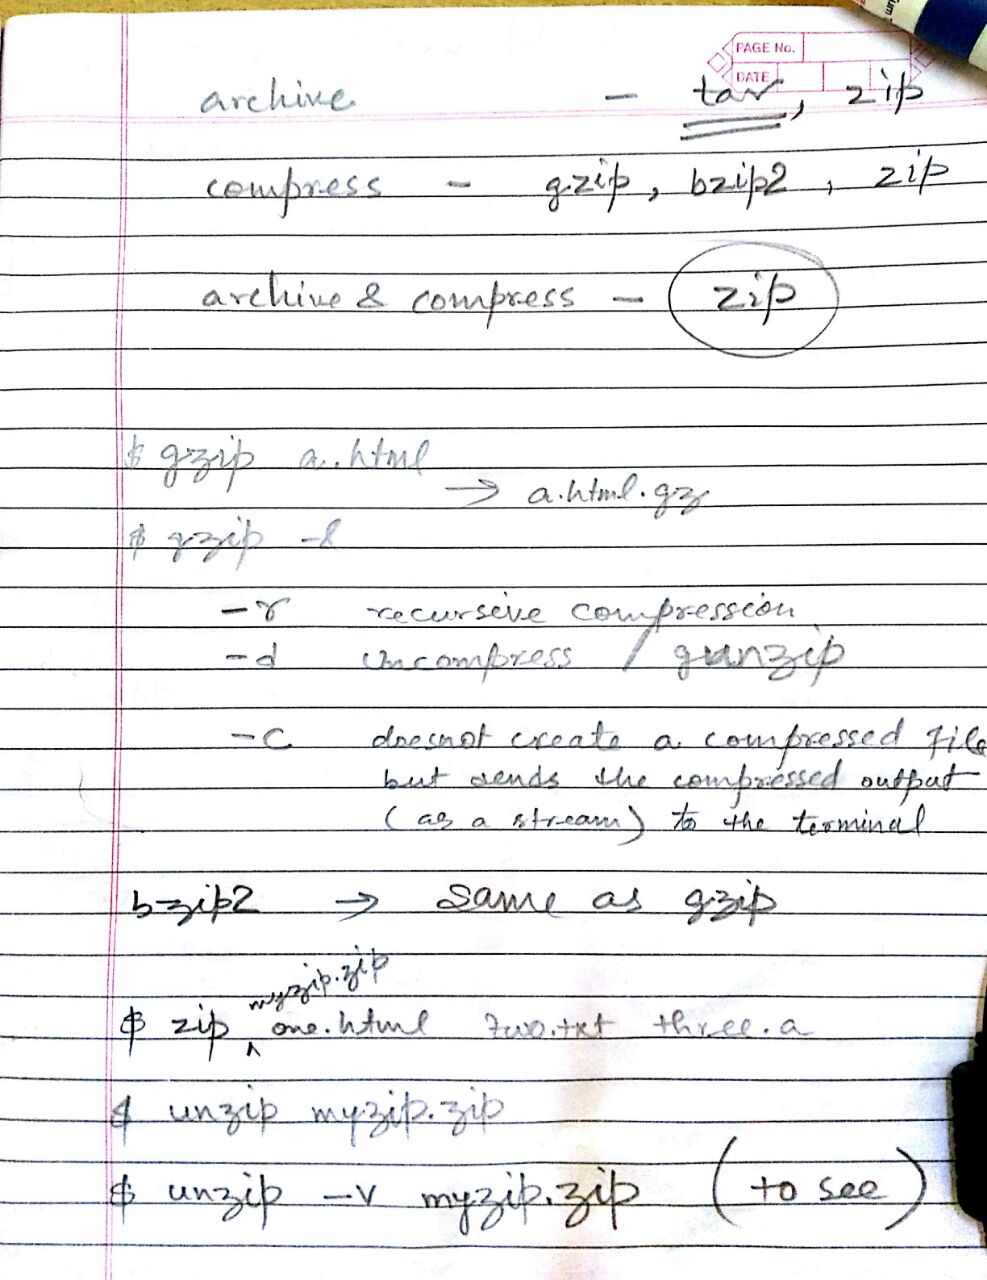 PAGE No.
DATE
archive - tar, zip
compress - gzip, bzip2, zip
archive & compress - zip
$ gzip a.html
→ a.html.gz
$ gzip -l
-r recursive compression
-d uncompress / gunzip
-c doesnot create a compressed file
but sends the compressed output
(as a stream) to the terminal
bzip2 → same as gzip
myzip.zip
$ zip ^ one.html two.txt three.a
$ unzip myzip.zip
$ unzip -v myzip.zip (to see)